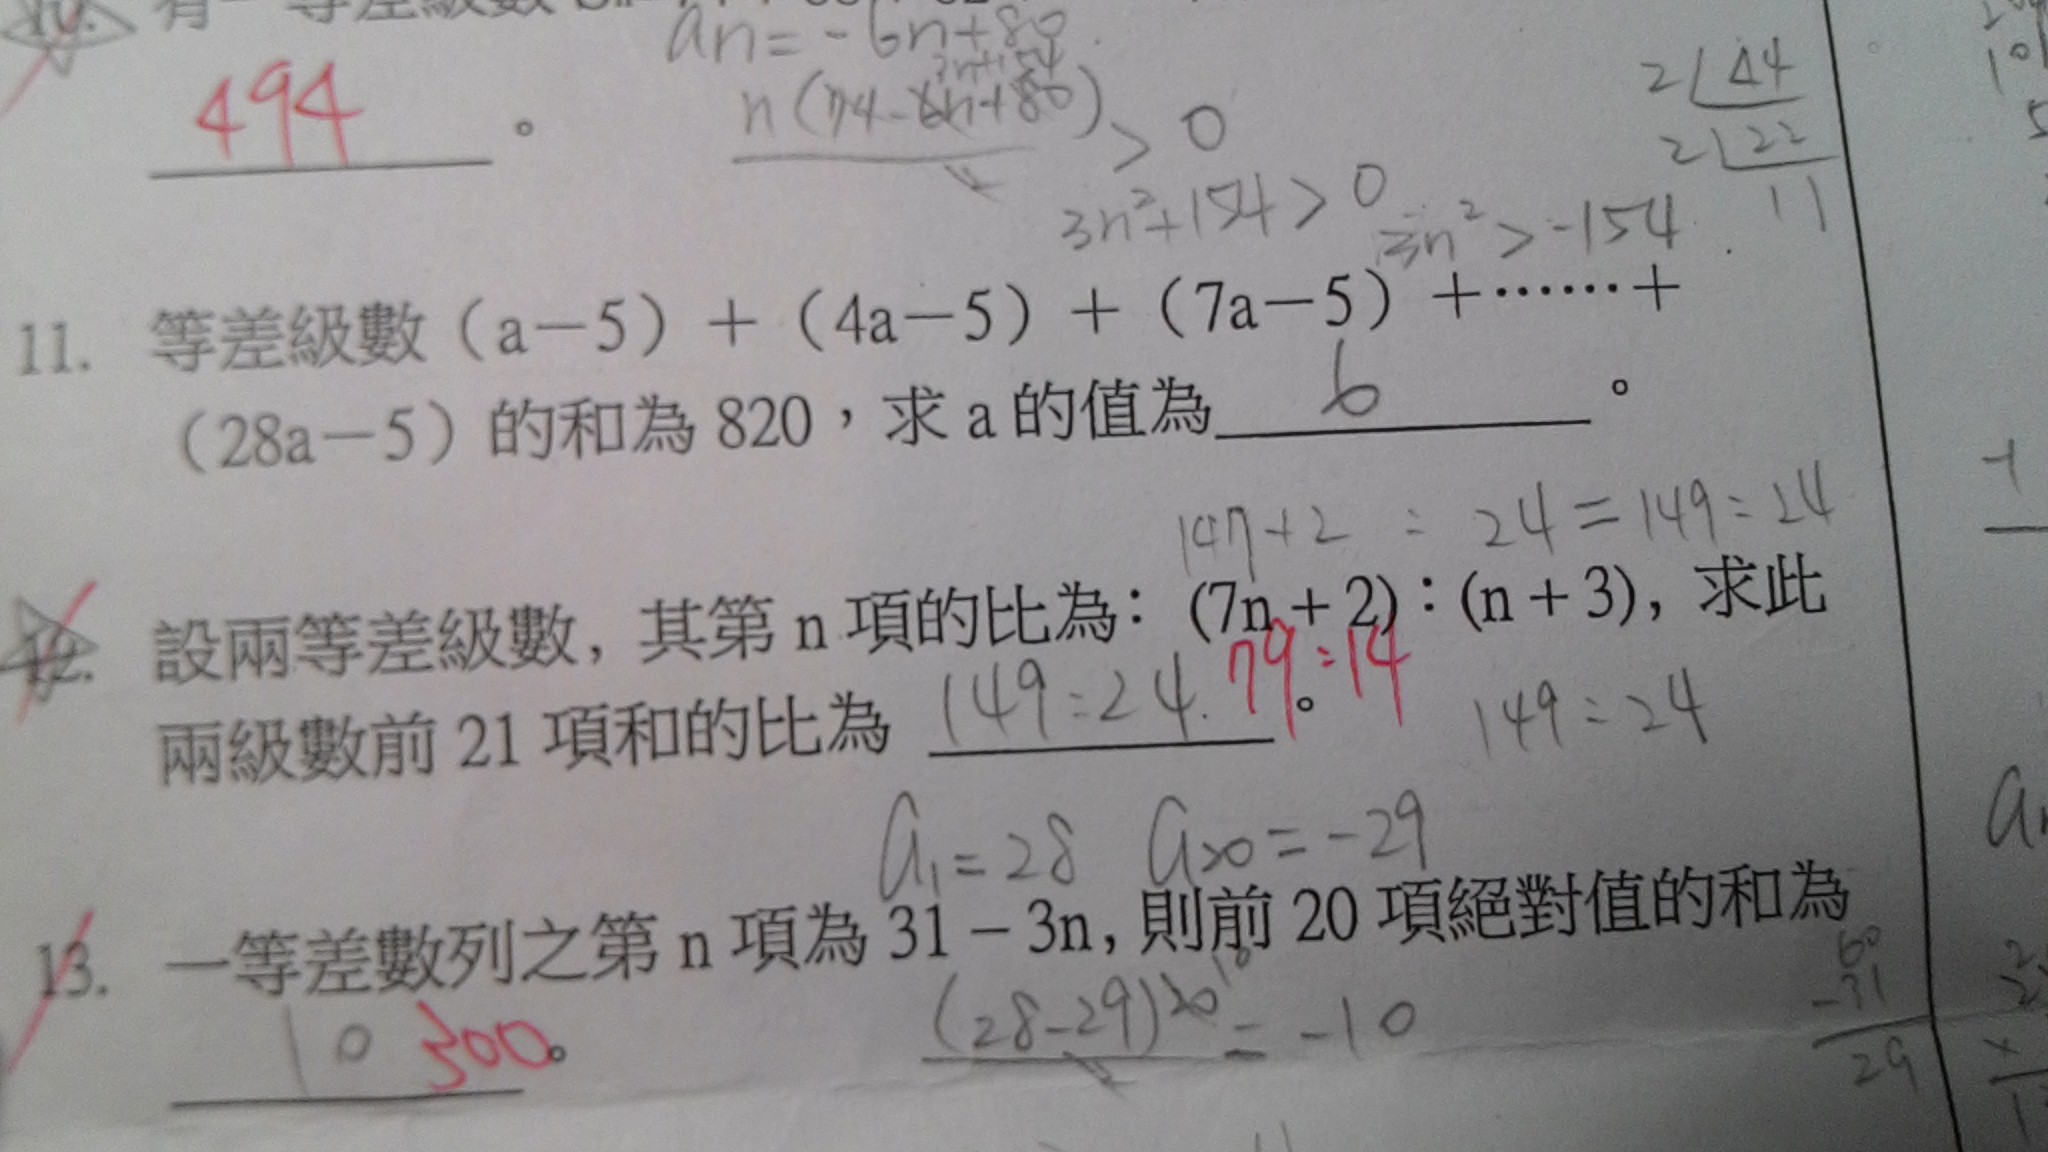 an=-6n+80
494 。
n(74-6n+80) > 0
2 44
2 22
11
3n²+154>0
3n²>-154
11. 等差級數（a－5）＋（4a－5）＋（7a－5）＋……＋
（28a－5）的和為 820，求 a 的值為 6 。
147+2 : 24 = 149:24
12. 設兩等差級數, 其第 n 項的比為: (7n + 2) : (n + 3), 求此
兩級數前 21 項和的比為 149:24. 79:14 。
149:24
a₁=28 a₂₀=-29
13. 一等差數列之第 n 項為 31 – 3n, 則前 20 項絕對值的和為
10 300 。
(28-29)20 10 = -10
60
-31
29